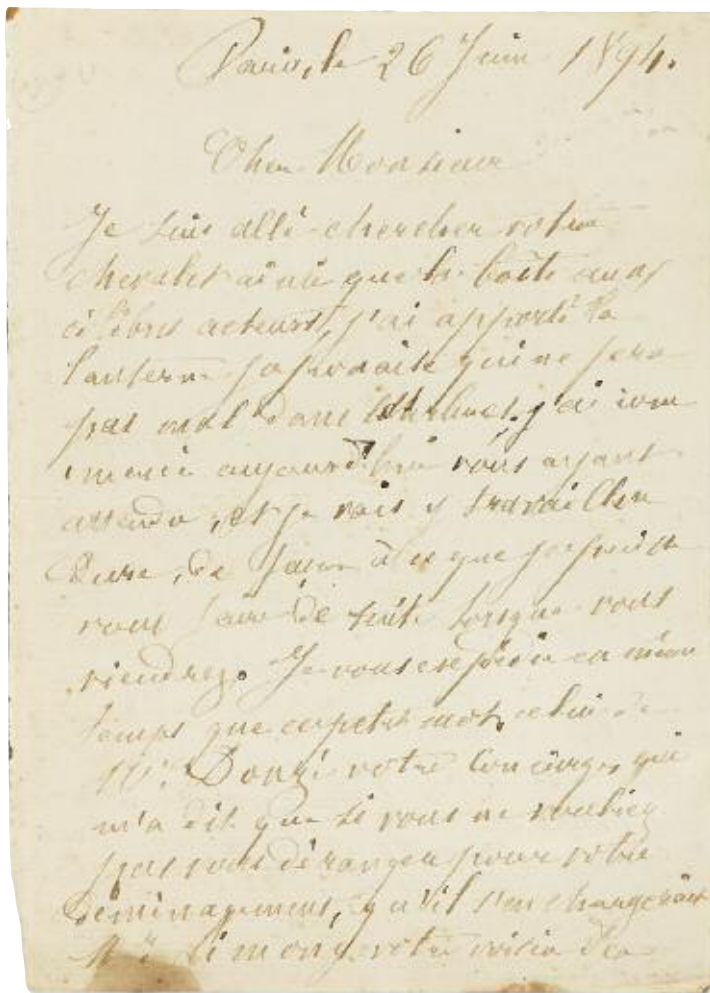 Paris, le 26 Juin 1894.
Cher Monsieur
Je suis allé chercher votre
chevalet ainsi que la boîte aux
célèbres acteurs, j'ai apporté la
lanterne qui ne sera
pas mal dans j'ai com
mencé aujourd'hui vous ayant
attendu, et je vais y travailler
dure, de façon à ce que je puisse
vous faire de suite lorsque vous
viendrez. Je vous expédie en même
temps que ce petit mot, celui de
Mr. votre concierge, qui
m'a dit que si vous ne vouliez
pas vous déranger pour votre
déménagement, qu'il s'en chargerait
votre voisin d'en